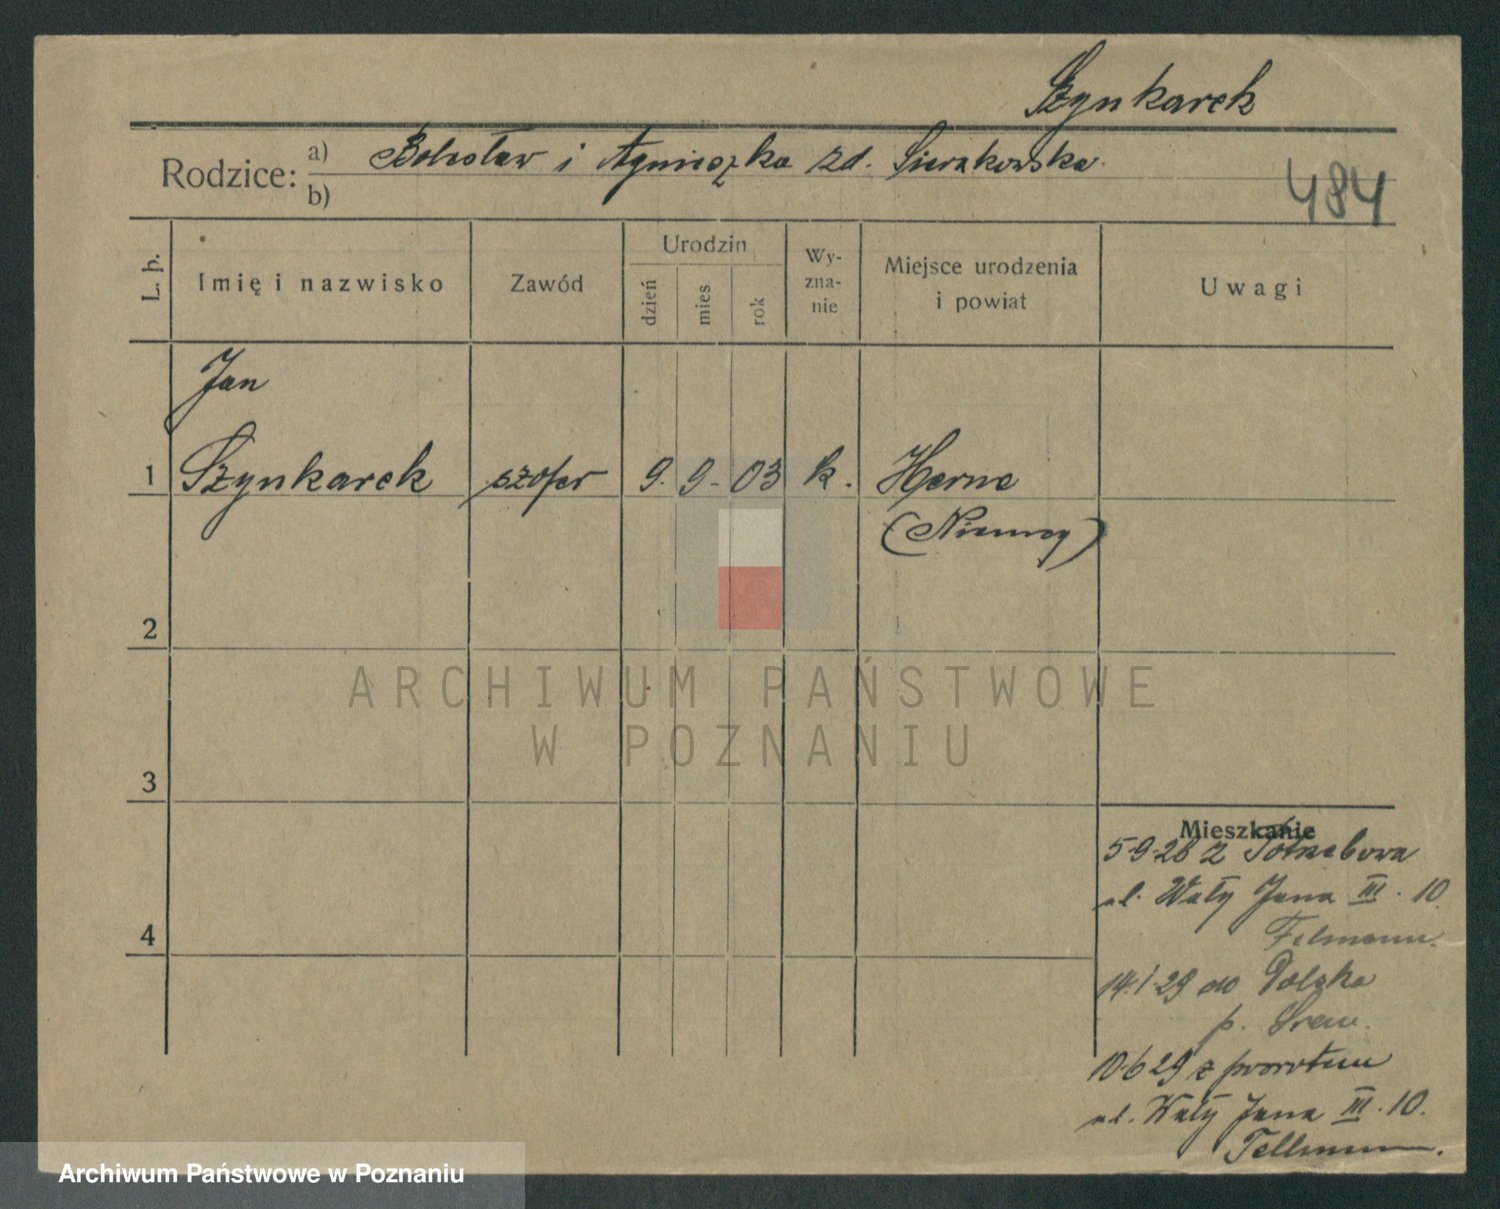 Szynkarek
Rodzice: a) Bolesław i Agnieszka zd. Sierakowska
b)
484
L. p.
Imię i nazwisko
Zawód
Urodzin
dzień
mies
rok
Wy-
zna-
nie
Miejsce urodzenia
i powiat
Uwagi
Jan
1 Szynkarek szofer 9. 9. 03 k. Herne
(Niemcy)
2
3
4
ARCHIWUM PAŃSTWOWE
W POZNANIU
Mieszkanie
5-9-28 z
ul. Wały Jana III. 10
14.1.29 do
p. Śrem.
10.6.29 z powrotem
ul. Wały Jana III. 10.
Archiwum Państwowe w Poznaniu